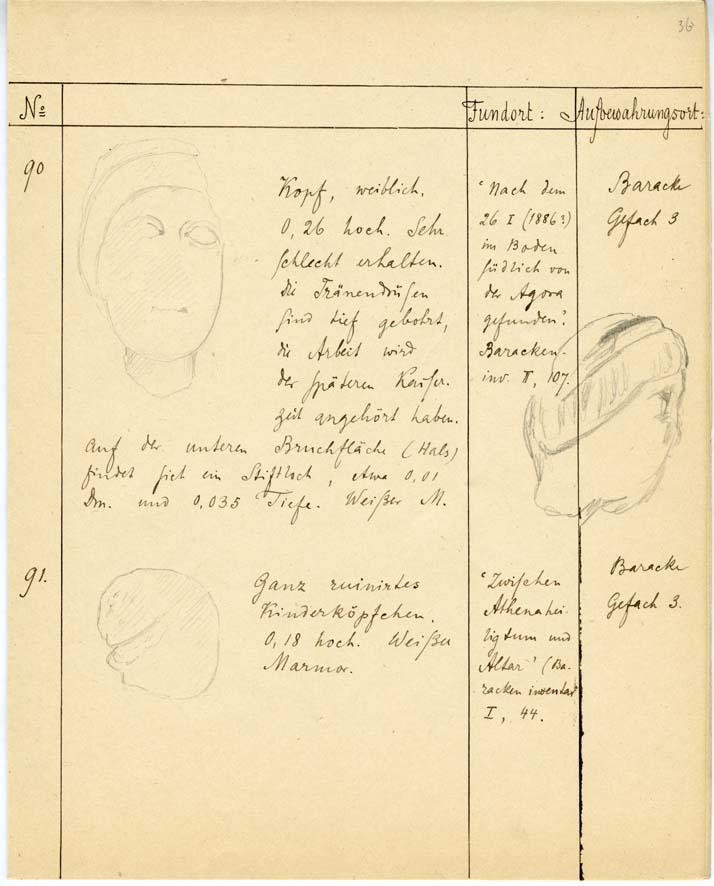 36
No Fundort: Aufbewahrungsort:
90
Kopf, weiblich.
0,26 hoch. Sehr
schlecht erhalten.
die Tränendrüsen
sind tief gebohrt,
die Arbeit wird
der späteren Kaiser-
zeit angehört haben.
Auf der unteren Bruchfläche (Hals)
findet sich ein Stiftloch, etwa 0,01
Dm. und 0,035 Tiefe. Weißer M.
"Nach dem
26 I (1886?)
im Boden
südlich von
der Agora
gefunden".
Baracken-
inv. II, 107.
Baracke
Gefach 3
91.
Ganz ruinirtes
Kinderköpfchen.
0,18 hoch. Weißer
Marmor.
"Zwischen
Athenahei-
ligtum und
Altar" (Ba-
racken inventar
I, 44.
Baracke
Gefach 3.